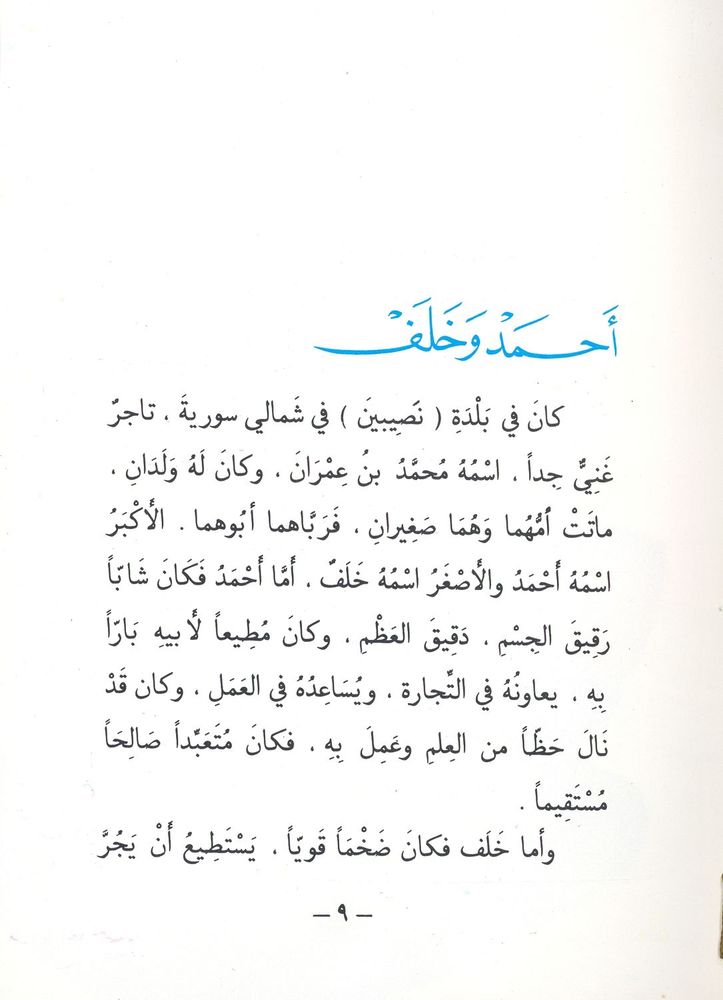 أَحمَدْ وَخَلَفْ
كانَ في بَلْدَةِ ( نَصِيبينَ ) في شَمالي سوريةَ ، تاجرٌ
غَنِيٌّ جِداً ، اسْمُهُ مُحمَّدُ بنُ عِمْرَانَ ، وكَانَ لَهُ وَلَدَانِ ،
ماتَتْ أمُّهُما وَهُمَا صَغِيرانِ ، فَرَبَّاهما أبُوهما . الأَكْبَرُ
اسْمُهُ أَحْمَدُ والأَصْغَرُ اسْمُهُ خَلَفٌ ، أمَّا أَحْمَدُ فَكَانَ شَابّاً
رَقِيقَ الجِسْمِ ، دَقِيقَ العَظْمِ ، وكانَ مُطِيعاً لأَبيهِ بَارّاً
بِهِ ، يعاونُهُ في التِّجارة ، ويُسَاعِدُهُ في العَمَلِ ، وكان قَدْ
نَالَ حَظّاً من العِلمِ وعَمِلَ بِهِ ، فكانَ مُتَعَبِّداً صَالِحَاً
مُسْتَقِيماً .
وأما خَلَف فكانَ ضَخْمَاً قَويّاً ، يَسْتَطِيعُ أَنْ يَجُرَّ
– ٩ –